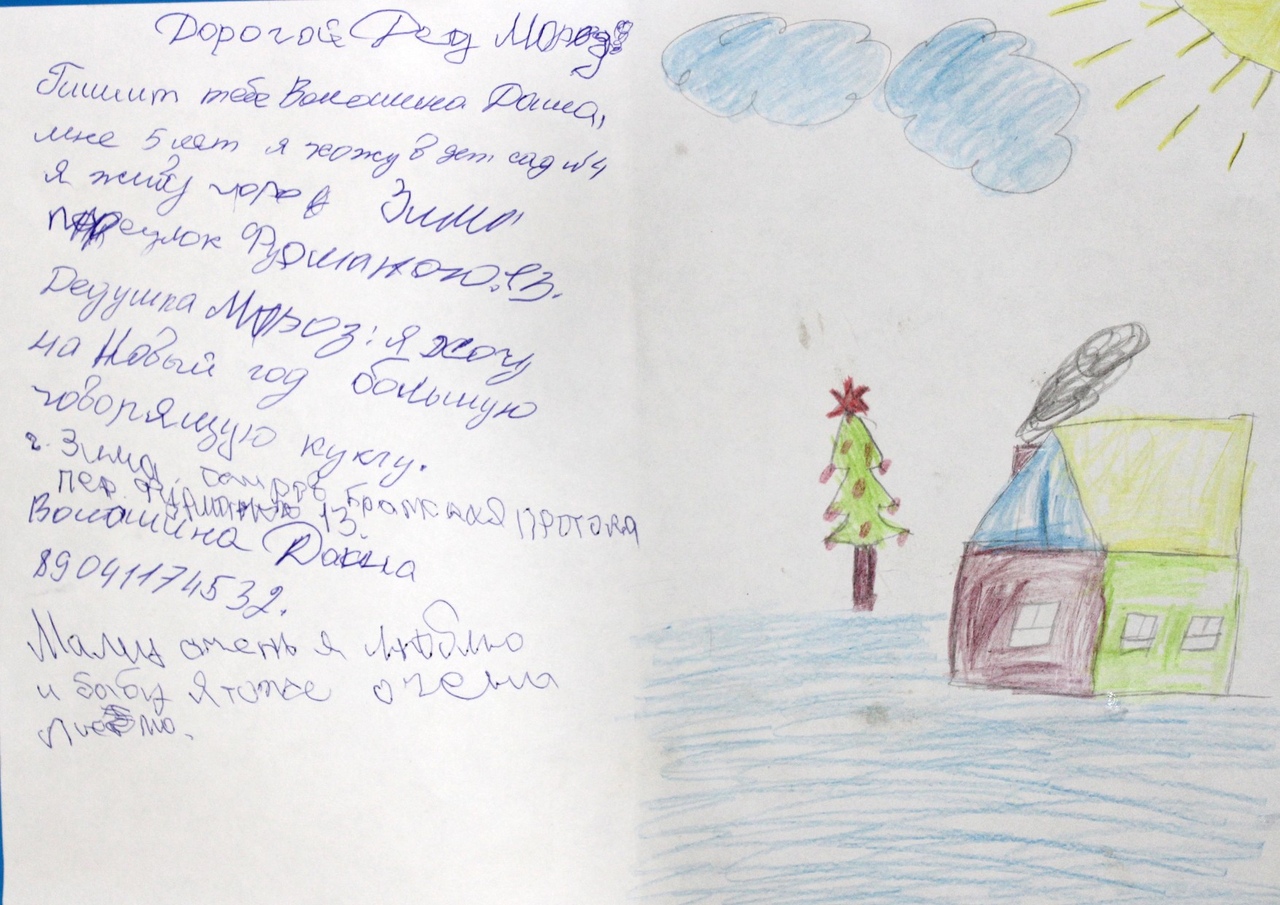 Дорогой Дед Мороз
Пишит тебе Волошина Даша,
мне 5 лет я хожу в дет сад №4
я живу город Зима
переулок Фурманого.13.
Дедушка Мороз: я хочу
на Новый год большую
говорящую куклу.
г. Зима, Братская протока
пер. 13
Волошина Даша
89041174532.
Маму очень я люблю
и бабу я тоже очена
люблю.